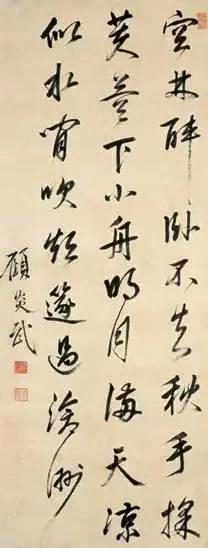 空林醉卧不知秋手採
芙蓉下小舟明月滿天凉
似水閒吹篴過滄洲
顧炎武